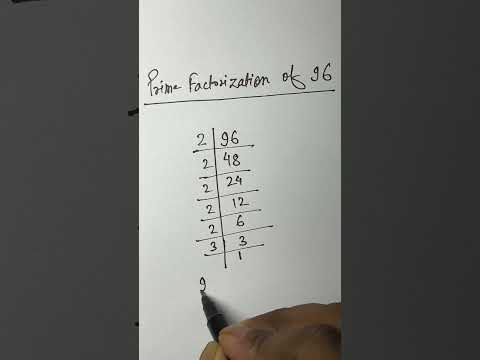 Prime Factorization of 96
2 | 96
2 | 48
2 | 24
2 | 12
2 | 6
3 | 3
1
9